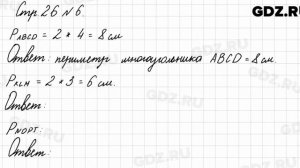 GDZ.RU
Стр. 26 № 6.
P ABCD = 2 * 4 = 8 см
Ответ: периметр многоугольника ABCD = 8 см.
P KLH = 2 * 3 = 6 см.
Ответ:
P NOPT:
Ответ:
GDZ.RU